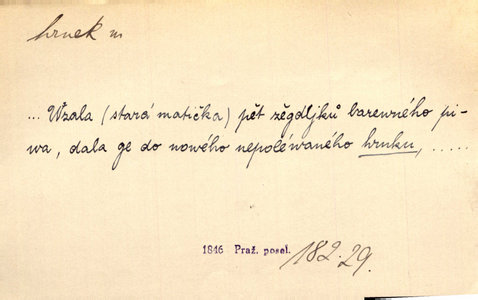 hrnek m
... Wzala (stará matička) pět zěgdljků barewného pi-
wa, dala ge do nowého nepoléwaného hrnku, .....
1846 Praž. posel. 182.29.